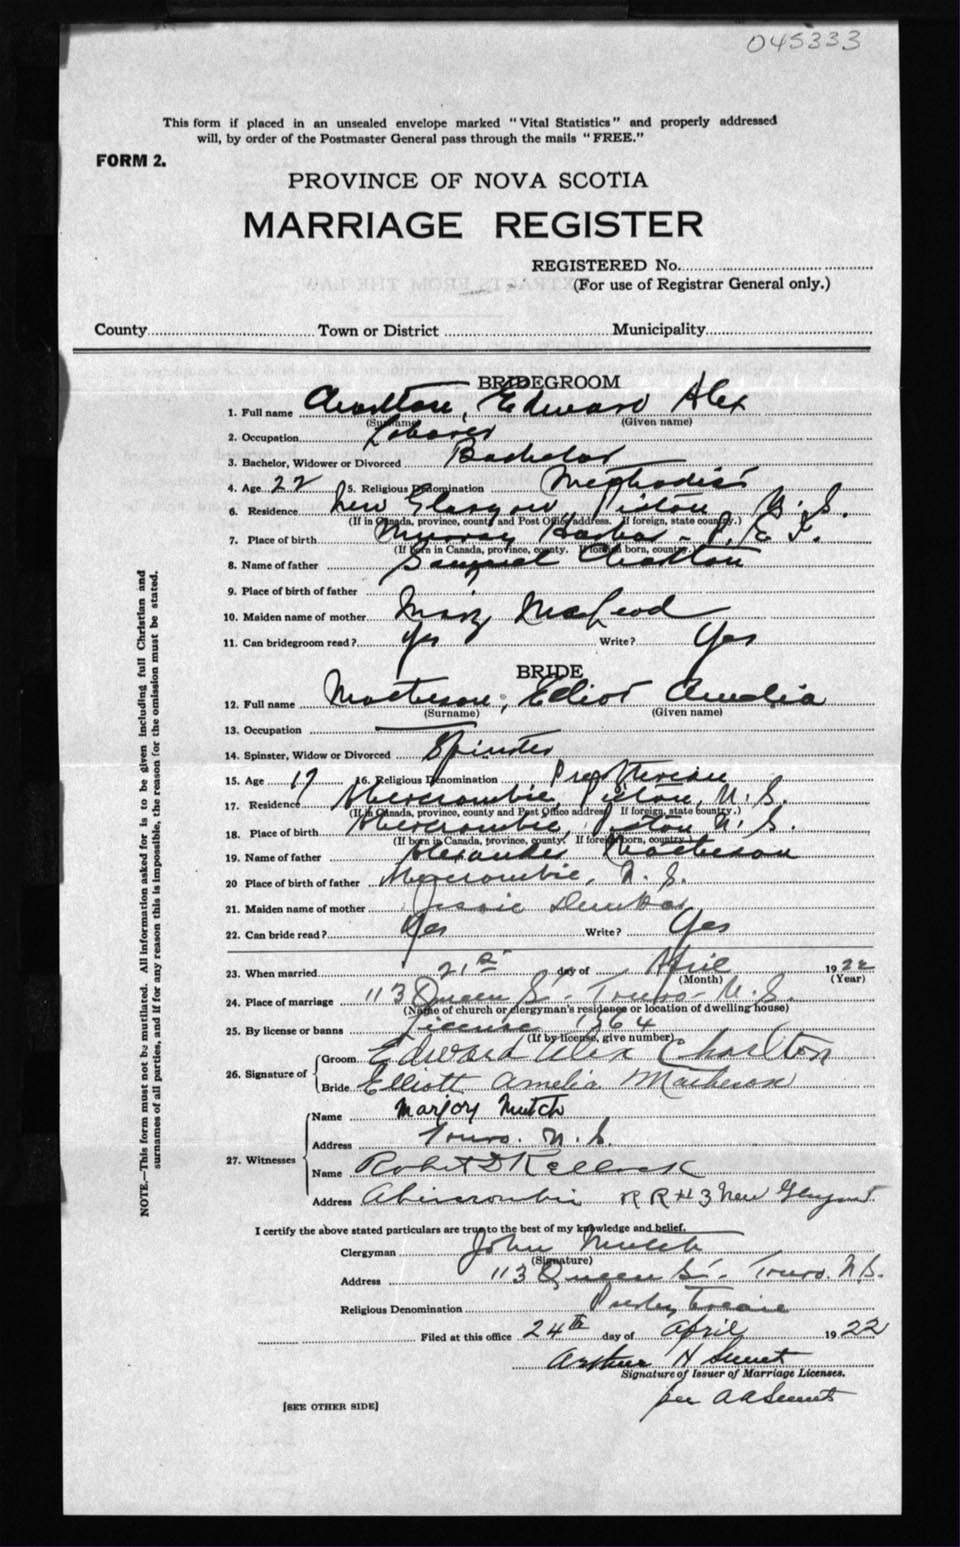 045333
This form if placed in an unsealed envelope marked "Vital Statistics" and properly addressed
will, by order of the Postmaster General pass through the mails "FREE."
FORM 2.
PROVINCE OF NOVA SCOTIA
MARRIAGE REGISTER
REGISTERED No.
(For use of Registrar General only.)
County Town or District Municipality
BRIDEGROOM
1. Full name Charlton, Edward Alex
(Surname) (Given name)
2. Occupation Laborer
3. Bachelor, Widower or Divorced Bachelor
4. Age 22 5. Religious Denomination Methodist
6. Residence New Glasgow, Pictou N. S.
(If in Canada, province, county and Post Office address. If foreign, state country.)
7. Place of birth Murray Harbor - P. E. I.
(If born in Canada, province, county. If foreign born, country.)
8. Name of father Samuel Charlton
9. Place of birth of father
10. Maiden name of mother Mary MacLeod
11. Can bridegroom read? Yes Write? Yes
BRIDE
12. Full name Matheson, Elliot Amelia
(Surname) (Given name)
13. Occupation
14. Spinster, Widow or Divorced Spinster
15. Age 17 16. Religious Denomination Presbyterian
17. Residence Abercrombie, Pictou, N. S.
(If in Canada, province, county and Post Office address. If foreign, state country.)
18. Place of birth Abercrombie, Pictou N. S.
(If born in Canada, province, county. If foreign born, country.)
19. Name of father Alexander Matheson
20 Place of birth of father Abercrombie, N. S.
21. Maiden name of mother Jessie Dunbar
22. Can bride read? Yes Write? Yes
23. When married 21st day of April 1922
(Month) (Year)
24. Place of marriage 113 Queen St. Truro N. S.
(Name of church or clergyman's residence or location of dwelling house)
25. By license or banns License 1364
(If by license, give number)
26. Signature of Groom Edward Alex Charlton
Bride Elliott Amelia Matheson
27. Witnesses Name Marjory Mutch
Address Truro. N. S.
Name Robert D Kellock
Address Abercrombie R R # 3 New Glasgow
I certify the above stated particulars are true to the best of my knowledge and belief.
Clergyman John Mutch
(Signature)
Address 113 Queen St. Truro. N.S.
Religious Denomination Presbyterian
Filed at this office 24th day of April 1922
Arthur H
Signature of Issuer of Marriage Licenses.
per A A
[SEE OTHER SIDE]
NOTE.—This form must not be mutilated. All information asked for is to be given including full Christian and
surnames of all parties, and if for any reason this is impossible, the reason for the omission must be stated.